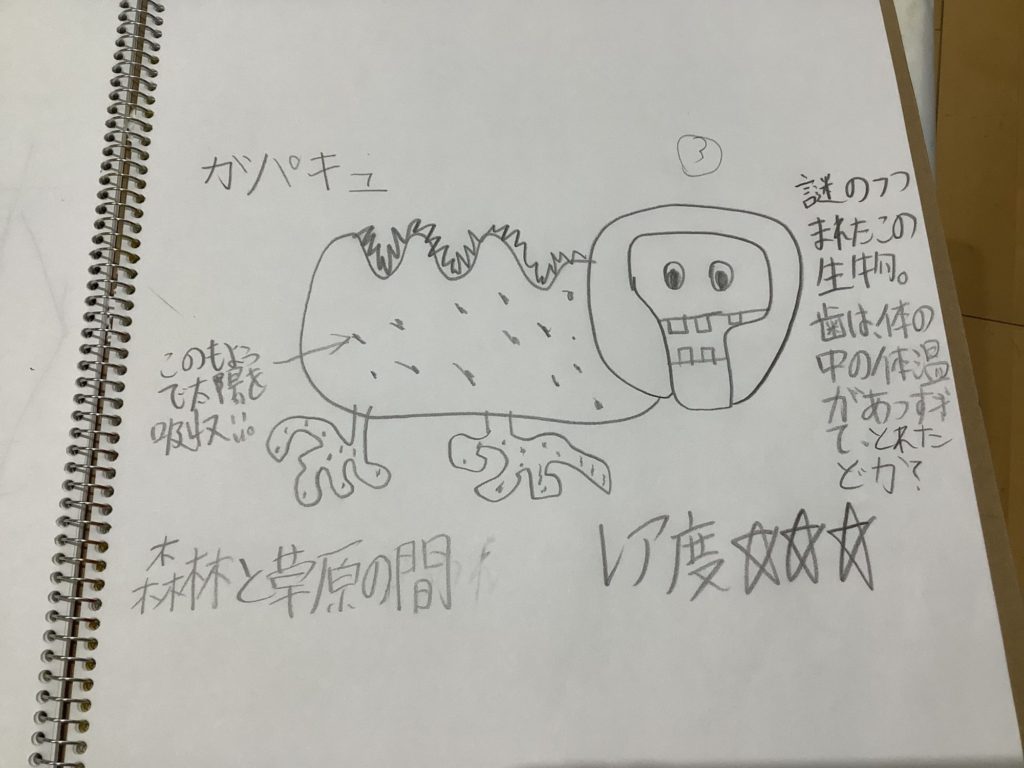 ③
ガパキュ
謎のつつ
まれたこの
生物。
歯は、体の
中の体温
があつすぎ
て、とれた
とか?
このもよう
で太陽を
吸収!!。
森林と草原の間
レア度☆☆☆